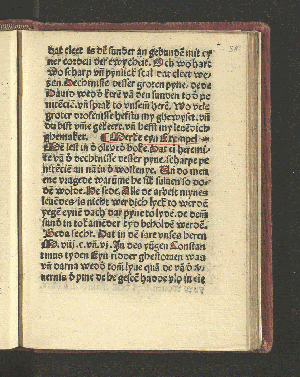 dat cleet is dē sunder an gebundē mit ey
ner corden der ewycheit. Och wo hart
wo scharp vñ pynlick scal dat cleet we
sen. Dechtnisse desser groten pyne. de de
Dauid wedδ berē vā den sunden to pe
nitēciē. vñ sprak to vnsem herē. Wo vele
groter droffenisse hefstu my ghewyset. vñ
du bist vm̄e gekeert. vñ hefst my leuēdich
ghemaket. Merke eyn Exempel
Mē lest in δ olderδ boke. Dat ei heremi
te vā δ dechtnisse desser pyne. scharpe pe
nitēciē an nā in δ wostene. Vñ do men
ene vragede warūme he sik suluen so do
den wolde. He sede. Alle de arbeit mynes
leuēdes is nicht werdich lyck to werdē
yegē eynē dach der pyne to lydē. de dem
sund in tokamēder tyδ beholdē werdē.
Beda secht. Dat in dē iare vnses heren
M. viij. c. vñ. vj. In des tygen Constan
tinus tyden Eyn ridder ghestoruen was
vñ darna wedδ tom lyue quā de vā δ
pyne de he geseē hadde vlo in eie